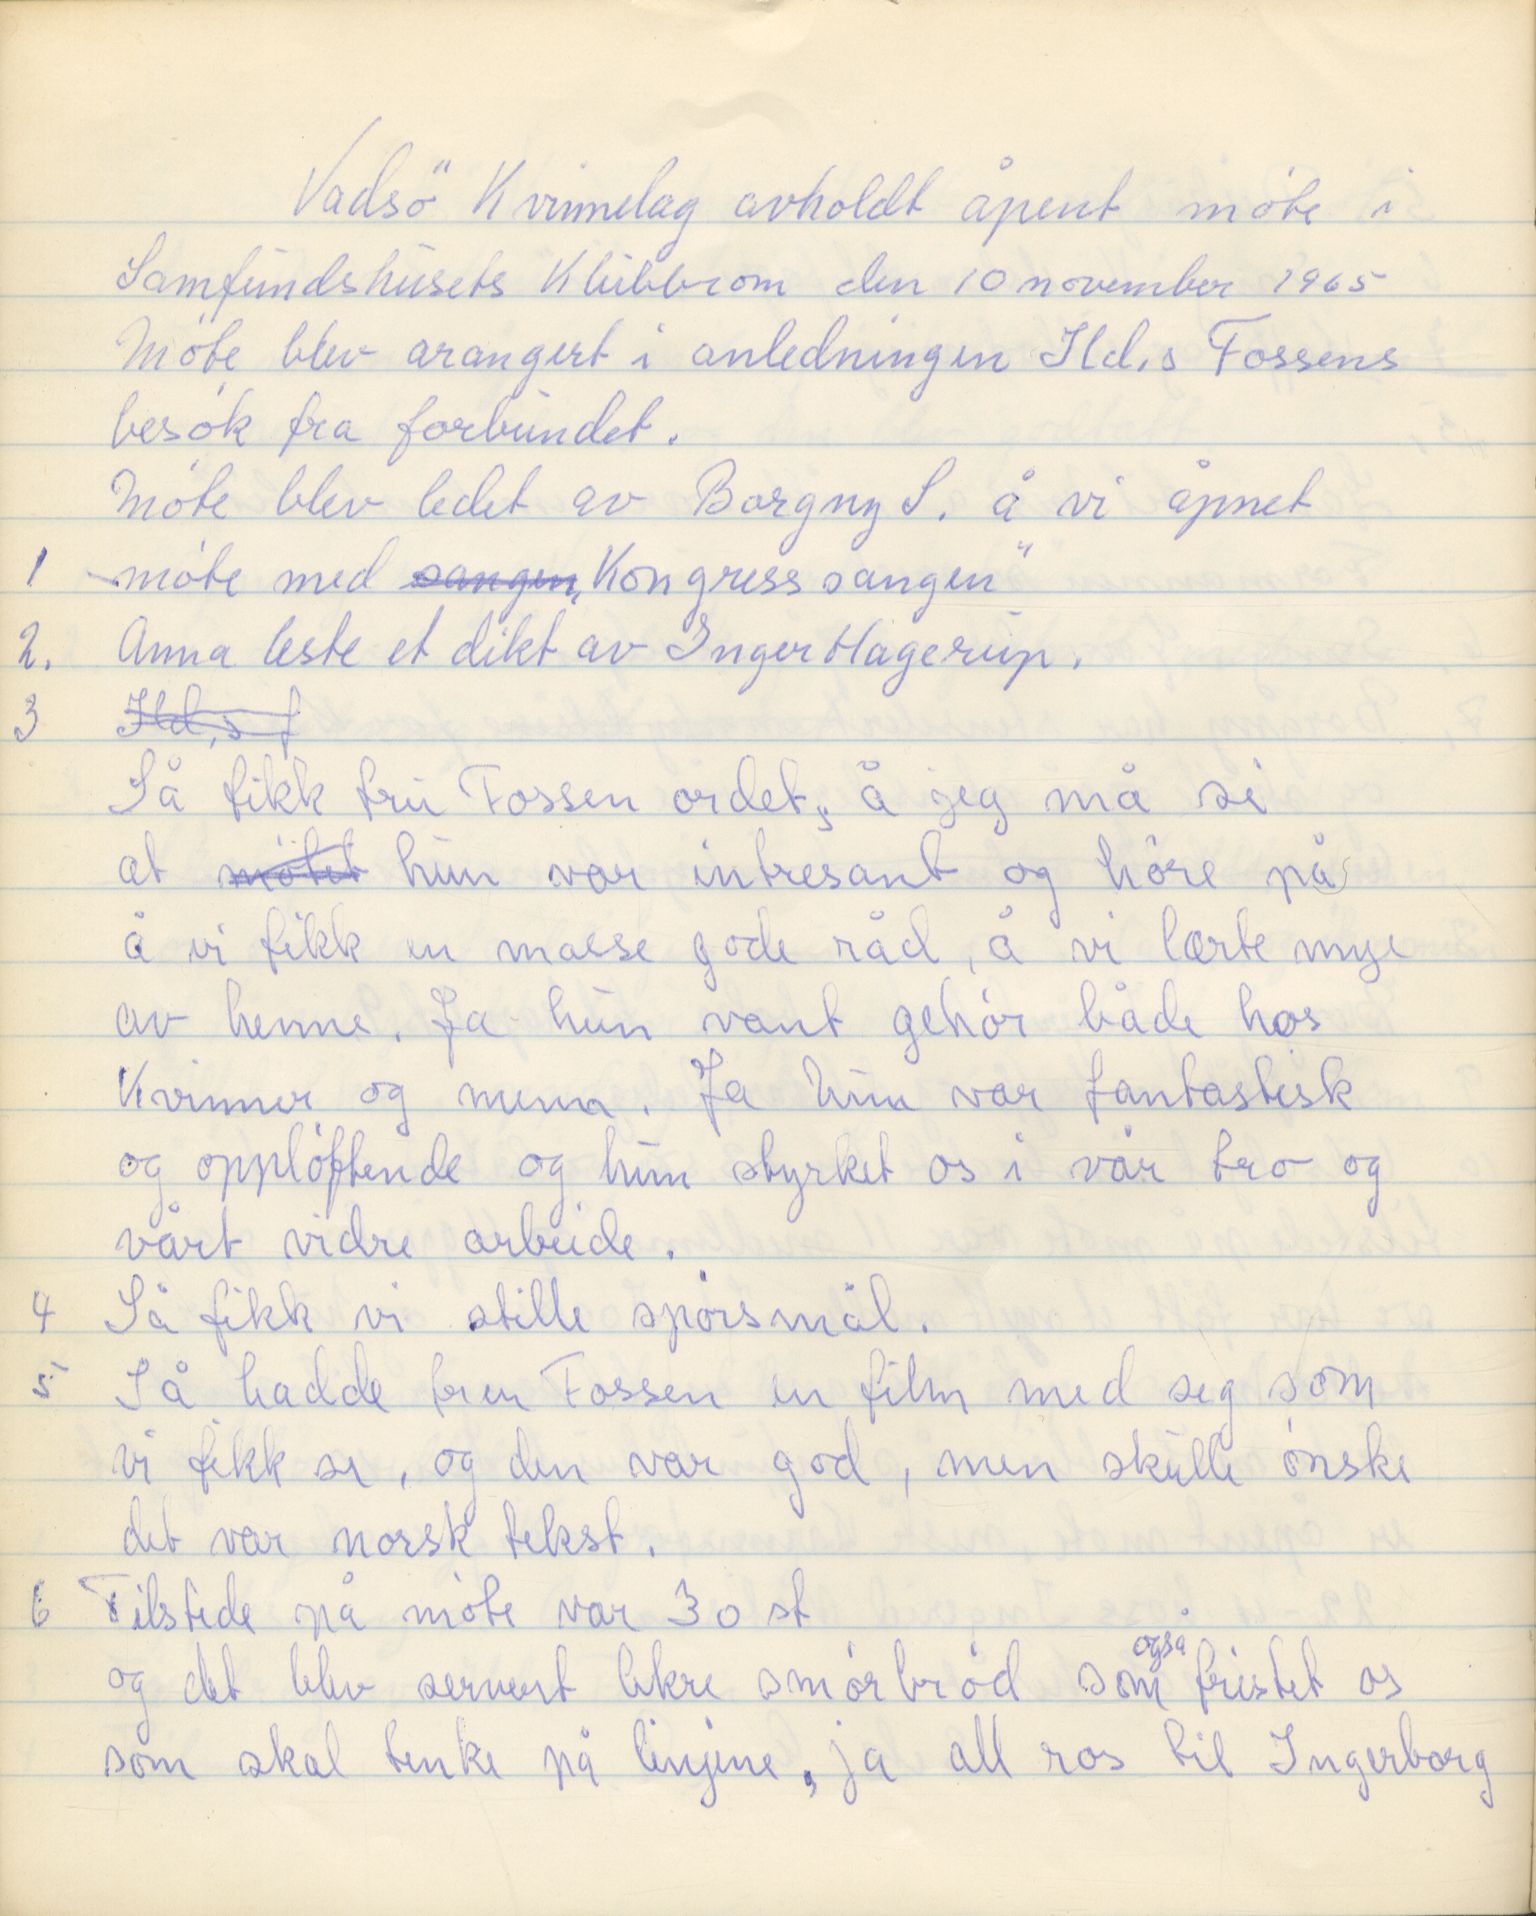 Vadsö Kvinnelag avholdt åpent möte i
Samfundshusets Klubbrom den 10 november 1965
Möte blev arangert i anledningen Ild,s Fossens
besök fra forbundet.
Möte blev ledet av Borgny S. å vi åpnet
1 möte med sangen „Kongress sangen"
2. Anna leste et dikt av Inger Hagerup.
3 Ild,s f
Så fikk fru Fossen ordet, å jeg må si
at mötet hun var intresant og höre på
å vi fikk en masse gode råd, å vi lærte mye
av henne. Ja hun vant gehör både hos
Kvinner og menn. Ja hun var fantastisk
og opplöftende og hun styrket os i vår tro og
vårt vidre arbeide.
4 Så fikk vi stille spörsmål.
5 Så hadde fru Fossen en film med seg som
vi fikk se, og den var god, men skulle önske
det var norsk tekst.
6 Tilstede på möte var 30 st
og det blev servert lekre smörbröd som også fristet os
som skal tenke på linjene, ja all ros til Ingerborg